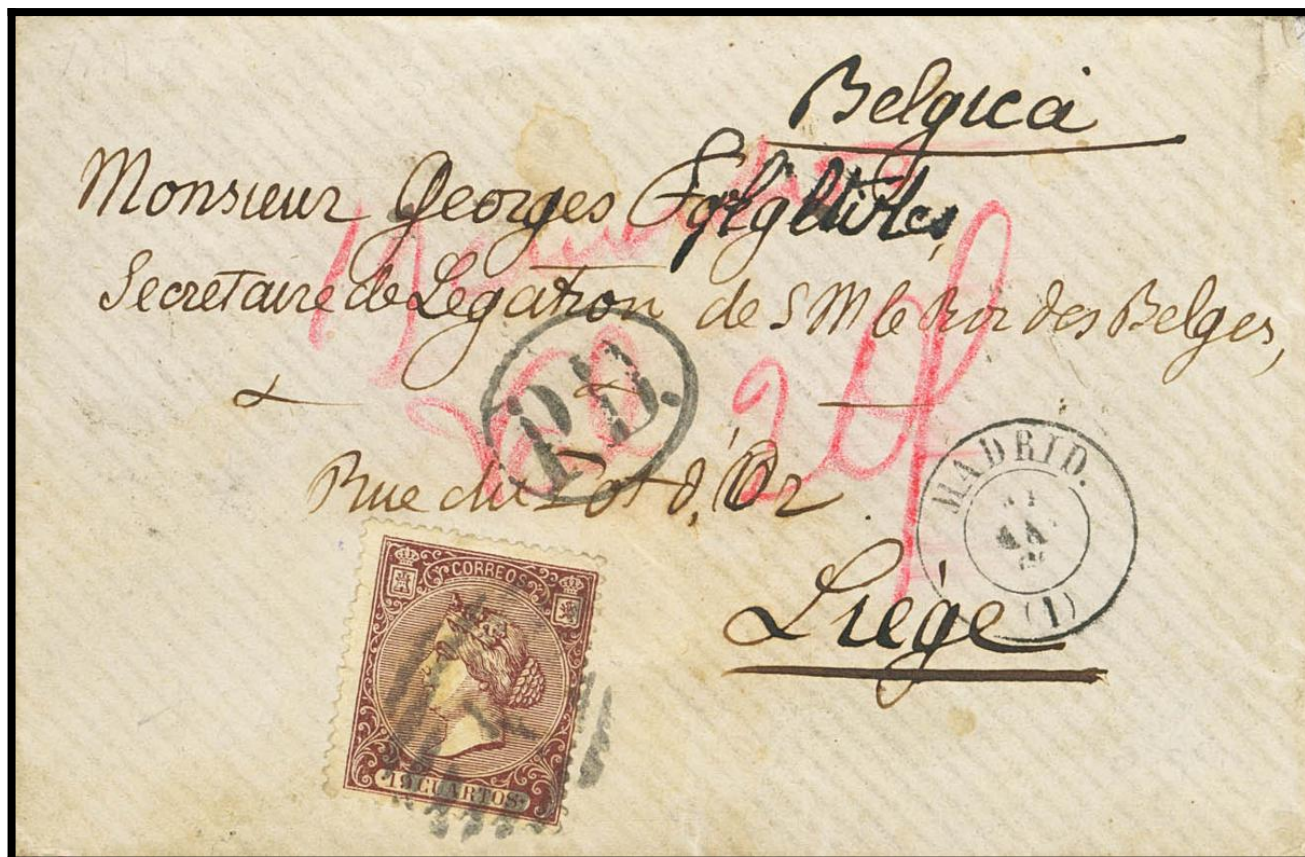 Belgica
Monsieur Georges
Secretaire de Legation de S M le Roi des Belges,
P.D.
Rue du Pot d'Or
MADRID.
(1)
Liége
CORREOS
19 CUARTOS